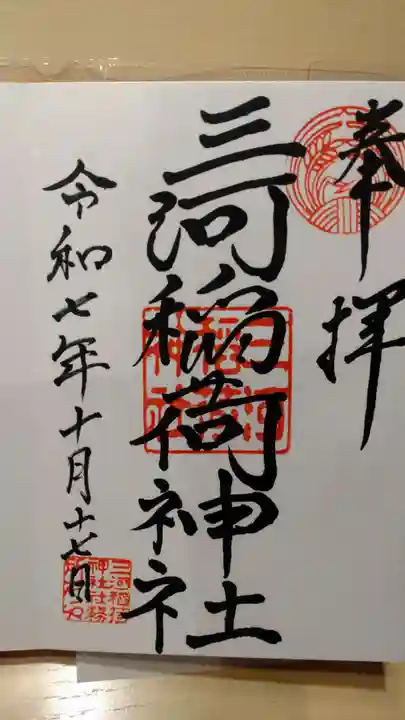 奉拝
三河稲荷神社
三河稲荷神社
令和七年十月十七日
三河稲荷
神社社務